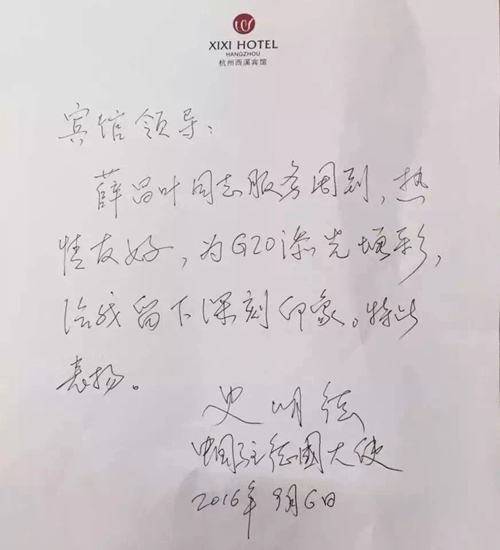 XIXI HOTEL
HANGZHOU
杭州西溪宾馆
宾馆领导：
薛昌叶同志服务周到，热
情友好，为G20添光增彩，
给我留下深刻印象。特此
表扬。
史明德
中国驻德国大使
2016年9月6日